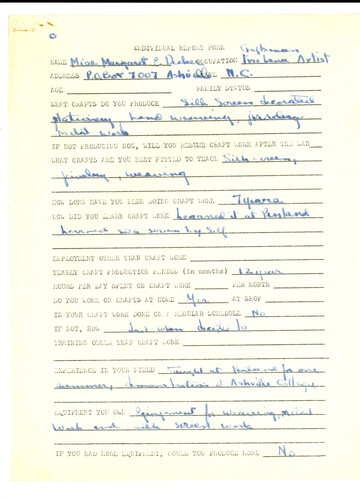 INDIVIDUAL REPORT FORM Craftsman
NAME Miss Margaret E. OCCUPATION Artist
ADDRESS P.O. Box 7007 Ashville N.C.
AGE FAMILY STATUS
WHAT CRAFTS DO YOU PRODUCE Silk Screen decorated
stationery, hand weaving, jewelry
metal work
IF NOT PRODUCING NOW, WILL YOU RESUME CRAFT WORK AFTER THE WAR
WHAT CRAFTS ARE YOU BEST FITTED TO TEACH Silk screen,
jewelry, weaving
HOW LONG HAVE YOU BEEN DOING CRAFT WORK 7 years
HOW DID YOU LEARN CRAFT WORK Learned it at Penland
learned silk screen by self
EMPLOYMENT OTHER THAN CRAFT WORK
YEARLY CRAFT PRODUCTION PERIOD (in months) 12
HOURS PER DAY SPENT ON CRAFT WORK PER MONTH
DO YOU WORK ON CRAFTS AT HOME Yes AT SHOP
IS YOUR CRAFT WORK DONE ON A REGULAR SCHEDULE No
IF NOT, HOW Just when decide to
TRAINING OTHER THAN CRAFT WORK
EXPERIENCE IN YOUR FIELD Taught at Penland for one
summer, demonstrations at Ashville College
EQUIPMENT YOU OWN Equipment for Weaving, Metal
Work and silk screen work
IF YOU HAD MORE EQUIPMENT, COULD YOU PRODUCE MORE No